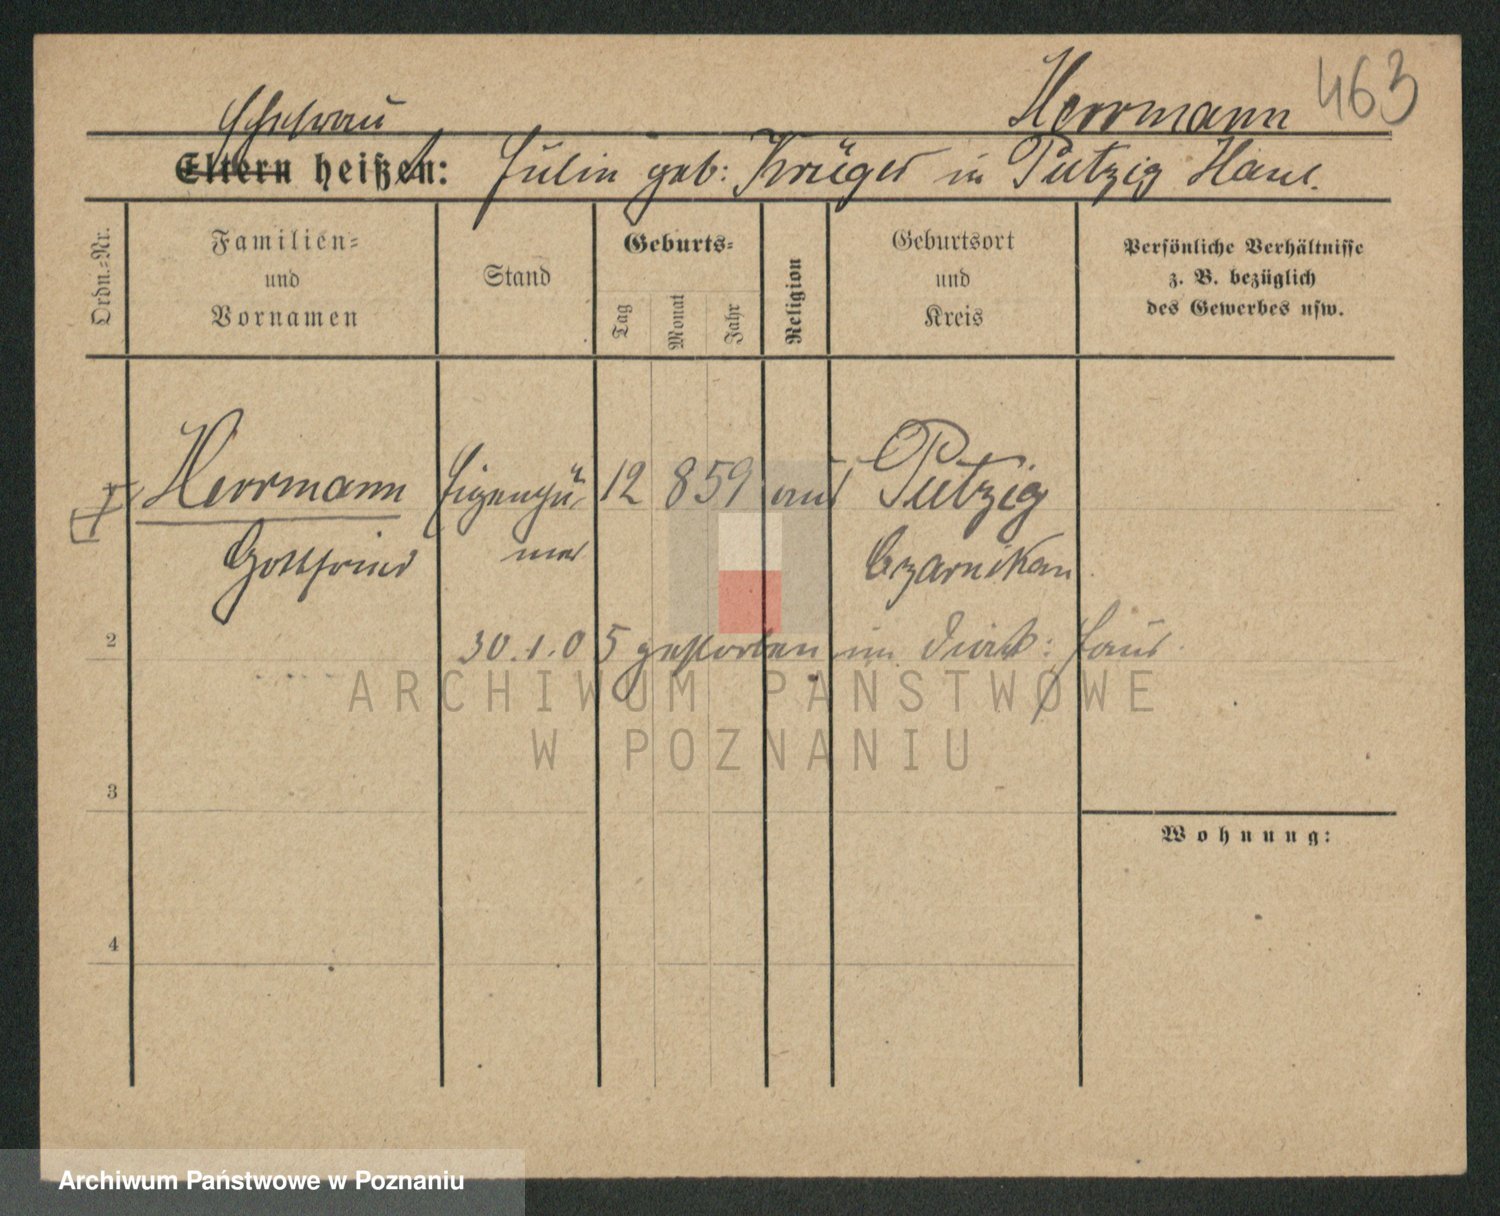 463
Herrmann
Ehefrau
Eltern heißen: Julin geb: Krüger in Putzig Haul.
Ordn.-Nr.
Familien-
und
Vornamen
Stand
Geburts-
Tag
Monat
Jahr
Religion
Geburtsort
und
Kreis
Persönliche Verhältnisse
z. B. bezüglich
des Gewerbes usw.
Herrmann Eigenthü- 12 8 59 aus Putzig
Gottfried mer Czarnikau
2
30.1.05 gestorben im Diak: Haus
3
4
Wohnung:
ARCHIWUM PAŃSTWOWE
W POZNANIU
Archiwum Państwowe w Poznaniu